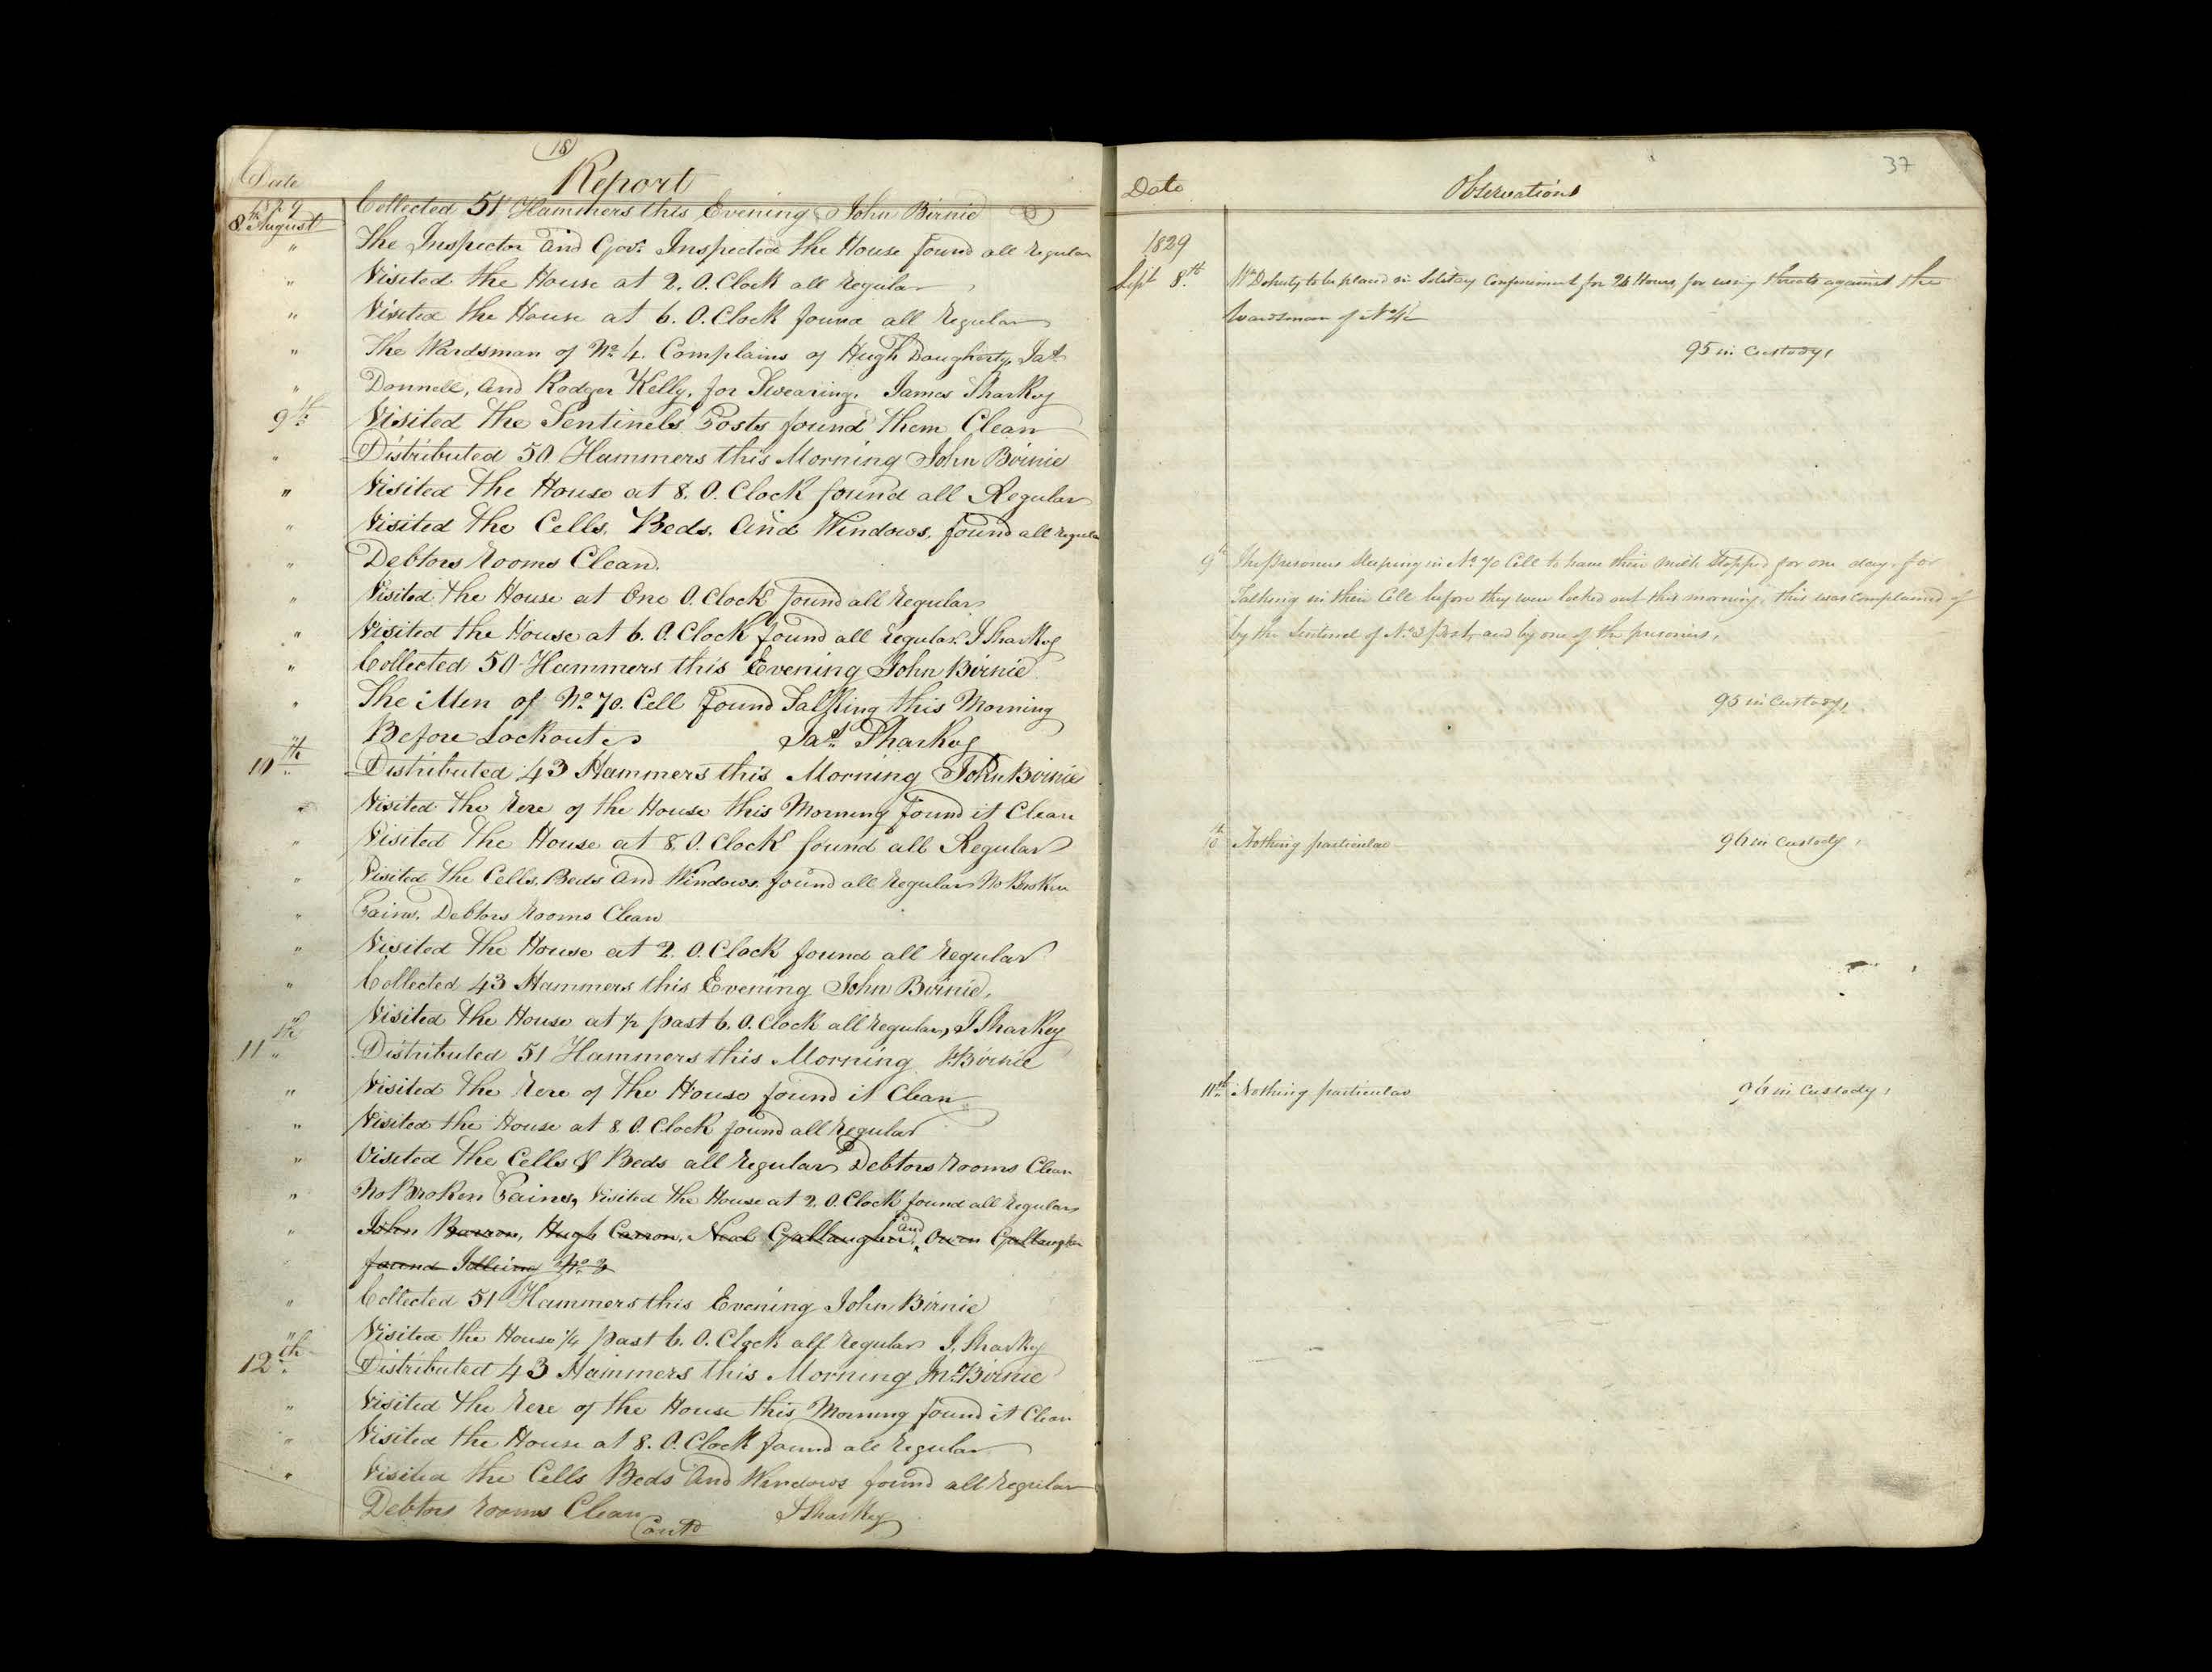 18
Date
Report
1829
8th August
Collected 51 Hammers this Evening John Birnie
" The Inspector and Govr. Inspected the House found all regular
" Visited the House at 2. O. Clock all regular
" Visited the House at 6. O. Clock found all regular
" The Wardsman of No. 4. Complains of Hugh Dougherty, Jas.
" Donnell, and Rodger Kelly, for Swearing. James Sharkey
9th Visited the Sentinels Posts found them Clean
" Distributed 50 Hammers this Morning John Birnie
" Visited the House at 8. O. Clock found all Regular
" Visited the Cells, Beds, and Windows, found all regular
" Debtors rooms Clean.
" Visited the House at One O. Clock found all regular
" Visited the House at 6. O. Clock found all regular J Sharkey
" Collected 50 Hammers this Evening John Birnie
" The Men of No. 70. Cell found Talking this Morning
" Before Lockout Jas. Sharkey
10th Distributed 43 Hammers this Morning John Birnie
" Visited the rere of the House this Morning found it Clean
" Visited the House at 8 O. Clock found all Regular
" Visited the Cells, Beds and Windows found all regular No Broken
" Pains. Debtors rooms Clean
" Visited the House at 2. O. Clock found all regular
" Collected 43 Hammers this Evening John Birnie,
" Visited the House at ½ past 6. O. Clock all regular, J Sharkey
11th Distributed 51 Hammers this Morning J. Birnie
" Visited the rere of the House found it Clean
" Visited the House at 8. O. Clock found all regular
" Visited the Cells & Beds all regular Debtors rooms Clean
" No Broken Pains, Visited the House at 2. O. Clock found all regular
" John Barron, Hugh Carron, Neal Gallaugher, and Owen Gallaugher
found Idleing No. 3
" Collected 51 Hammers this Evening John Birnie
" Visited the House ¼ past 6. O. Clock all regular J. Sharkey
12th Distributed 43 Hammers this Morning Jn. Birnie
" Visited the rere of the House this Morning found it Clean
" Visited the House at 8. O. Clock found all regular
" Visited the Cells Beds and Windows found all regular
Debtors rooms Clean J Sharkey
Contd
37
Date
Observations
1829
Sept 8th Hh. Doherty to be placed in Solitary Confinement for 24 Hours, for using threats against the
Wardsman of No. 4
95 in Custody,
9th The prisoners Sleeping in No. 70 Cell to have their milk Stopped for one day, for
Talking in their Cell before they were locked out this morning, this was complained of
by the Sentinel of No. 3 post, and by one of the prisoners,
95 in Custody,
10th Nothing particular 96 in Custody,
11th Nothing particular 96 in Custody,